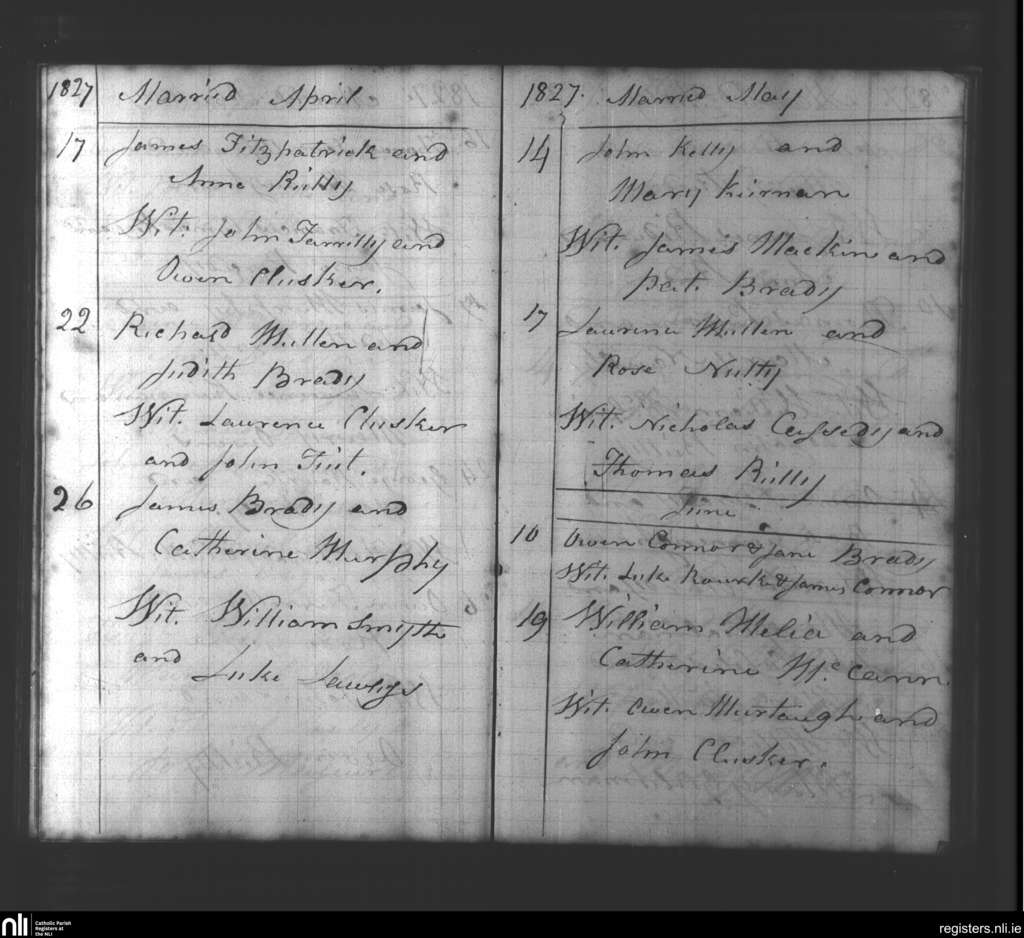 1827 Married April
17 James Fitzpatrick and
Anne Rielly
Wit. John Farrilly and
Owen Clusker.
22 Richard Mullen and
Judith Brady
Wit. Laurence Clusker
and John
26 James Brady and
Catherine Murphy
Wit. William Smyth
and
Luke
1827. Married May
14 John Kelly and
Mary Kiernan
Wit. James Mackin and
Pat. Brady
17 Laurence Mullen and
Rose Nulty
Wit. Nicholas Cassedy and
Thomas Rielly
June
10 Owen Connor & Jane Brady
Wit. Luke Rourke & James Connor
19 William Melia and
Catherine Mc. Cann
Wit. Owen Murtaugh and
John Clusker.
nli
Catholic Parish
Registers at
the NLI
registers.nli.ie